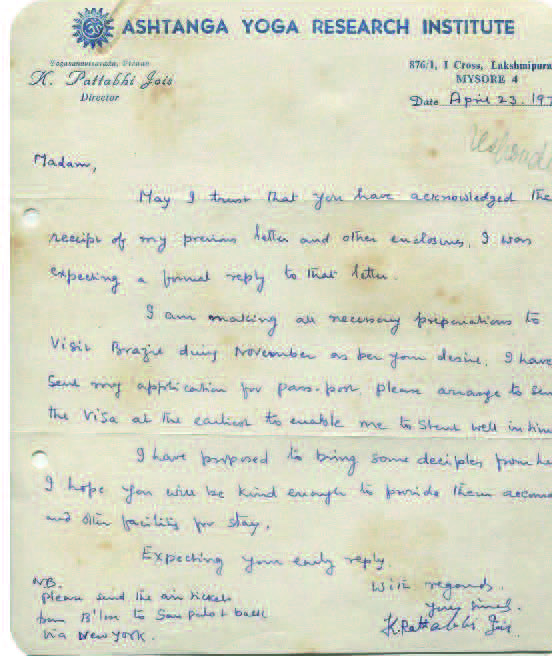 ASHTANGA YOGA RESEARCH INSTITUTE
Yogasanavisarada, Vidwan
K. Pattabhi Jois
Director
876/1, I Cross, Lakshmipura
MYSORE 4
Date April 23. 197
Madam,
May I trust that you have acknowledged the
receipt of my previous letter and other enclosures. I was
expecting a formal reply to that letter.
I am making all necessary preparations to
Visit Brazil during November as per your desire. I have
send my application for pass-port. please arrange to sen
the Visa at the earliest to enable me to well in
I have proposed to bring some deciples from he
I hope you will be kind enough to provide them accom
and other facility for stay.
Expecting your early reply
With regards.
NB.
Please send the air tickets
from B'lore to San Paulo & back
via New York.
K. Pattabhi Jois.